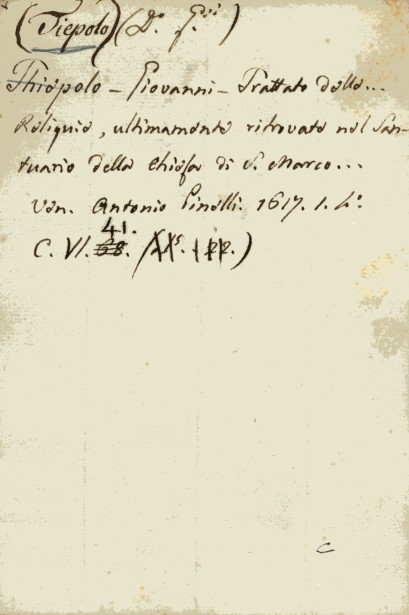 (Tiepolo) (D. G.ni)
Thiepolo - Giovanni - Trattato delle...
Reliquie, ultimamente ritrovate nel San-
tuario della Chiesa di S. Marco...
Ven. Antonio Pinelli. 1617. 1. 4.º
41.
C. VI. 68.
C